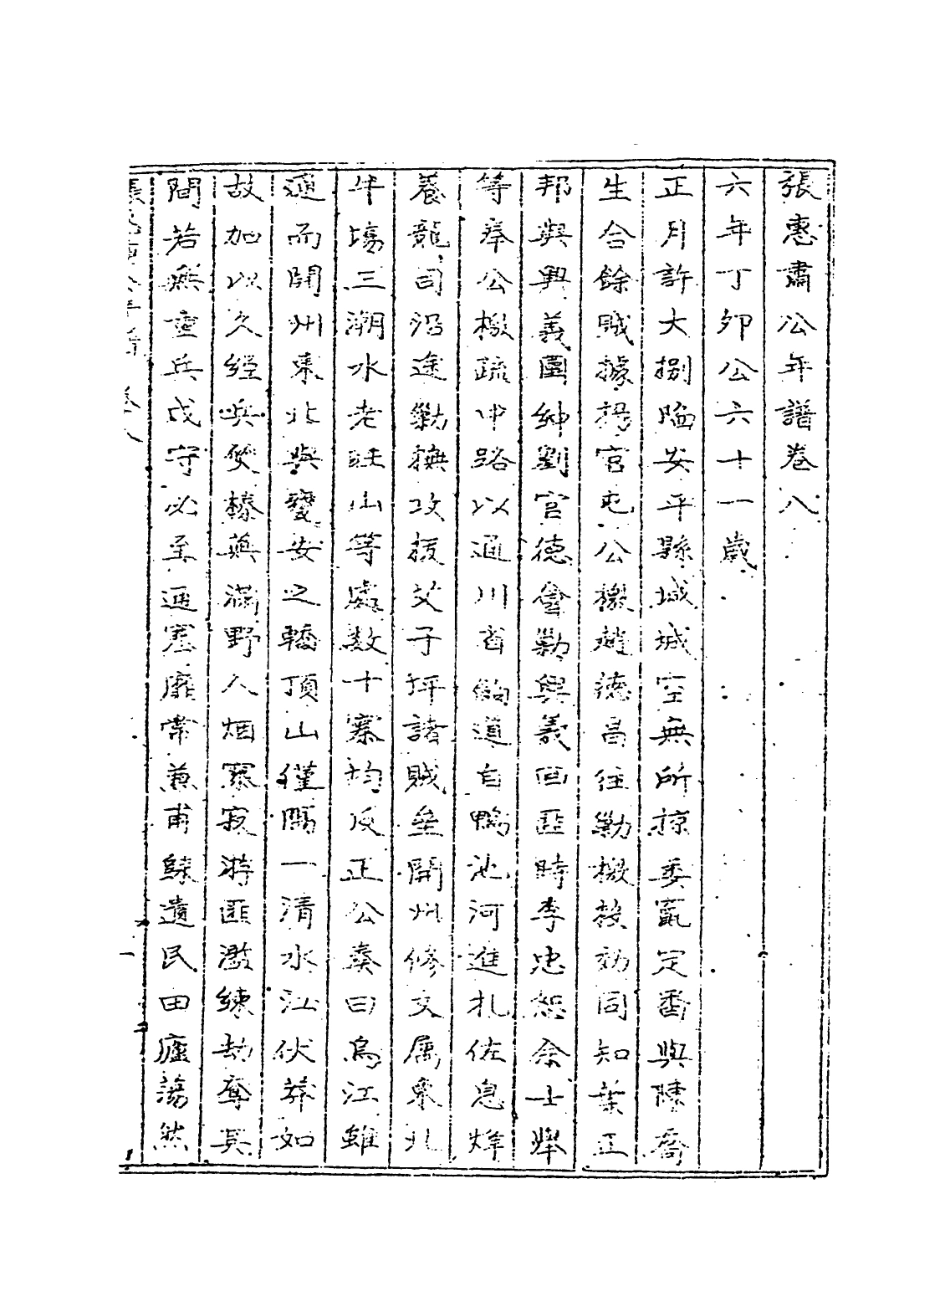 張惠肅公年譜卷八
六年丁卯公六十一歲
正月許大捌陷安平縣城城空無所掠委竄定番與陳喬
生合餘賊據拐官屯公檄趙德昌往勦檄教効同知葉正
邦與興義團紳劉官德會勦興義回匪時李忠恕余士舉
等奉公檄疏中路以通川省餉道自鴨池河進札佐息烽
養龍司沿途勦撫攻拔艾子坪諸賊壘開州修文屬東北
牛場三潮水老旺山等處数十寨均反正公奏曰烏江雖
通而開州東北與甕安之轎頂山僅隔一清水江伏莽如
故加以久經兵燹榛蕪滿野人烟寥寂游匪濫練劫奪其
間若無重兵戍守必至通塞靡常兼甫歸遺民田廬蕩然
卷八